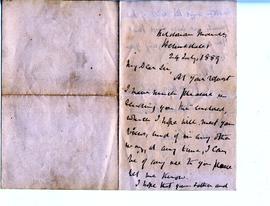 Hounsditch
24 July, 1889
My Dear Sir,
As you request
I have much pleasure in
sending you the enclosed
which I hope will meet your
views, and if in any other
way, at any time, I can
be of any use to you please
let me know.
I hope that your father and